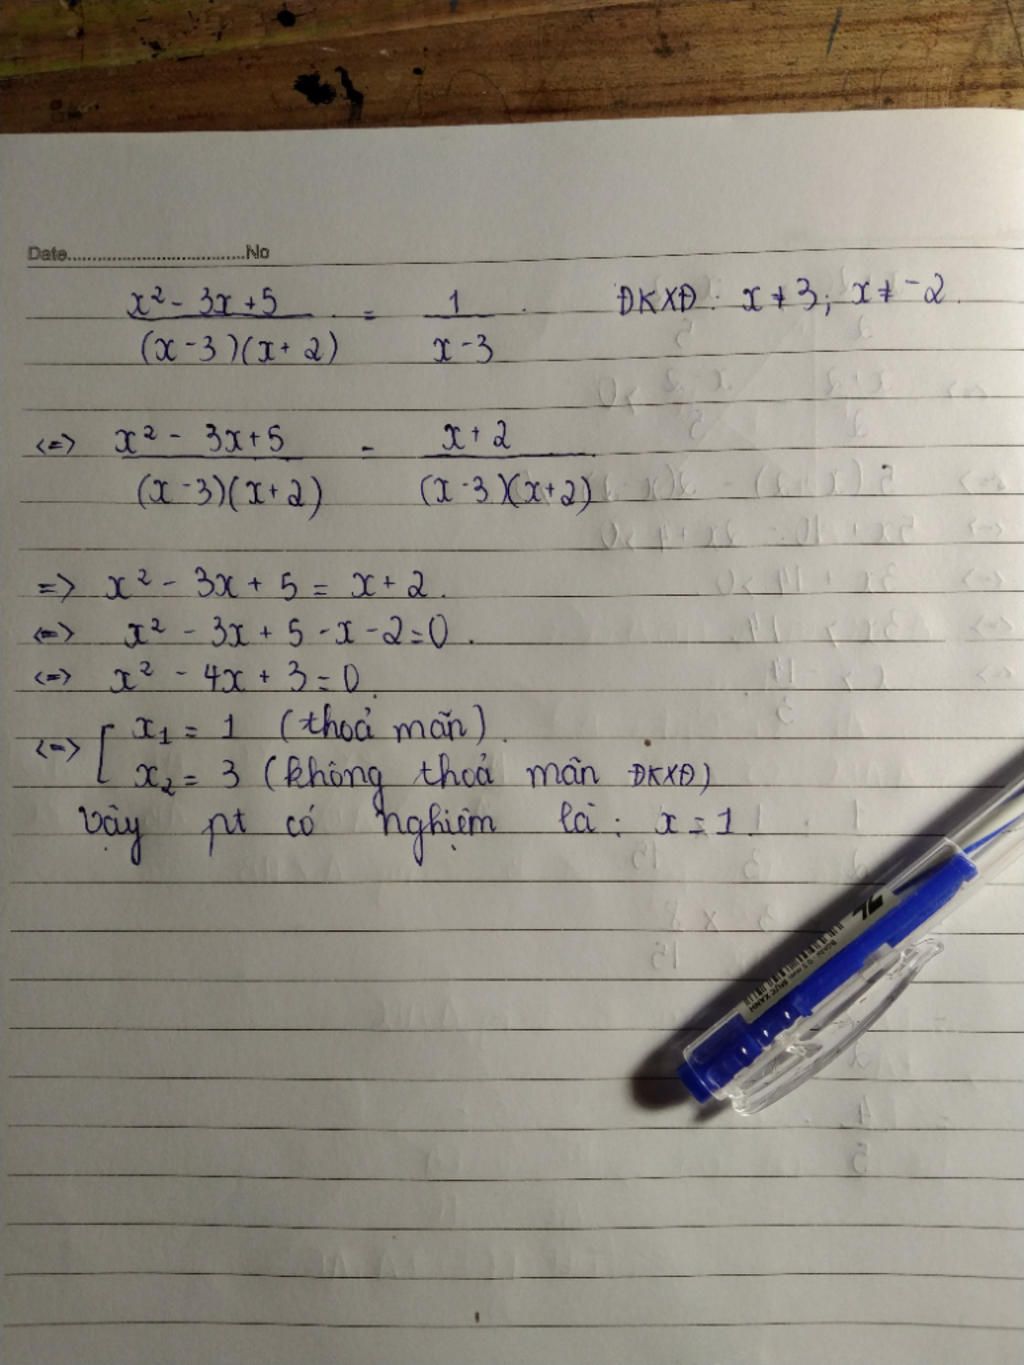 Date.................................No
x² - 3x + 5 / (x - 3)(x + 2) = 1 / x - 3 . ĐKXĐ: x ≠ 3; x ≠ -2.
<=> x² - 3x + 5 / (x - 3)(x + 2) = x + 2 / (x - 3)(x + 2)
=> x² - 3x + 5 = x + 2.
<=> x² - 3x + 5 - x - 2 = 0.
<=> x² - 4x + 3 = 0.
<=> [ x₁ = 1 (thoả mãn).
x₂ = 3 (không thoả mãn ĐKXĐ)
Vậy pt có nghiệm là: x = 1.
TL
Bút bi 0.5 mm MỰC XANH